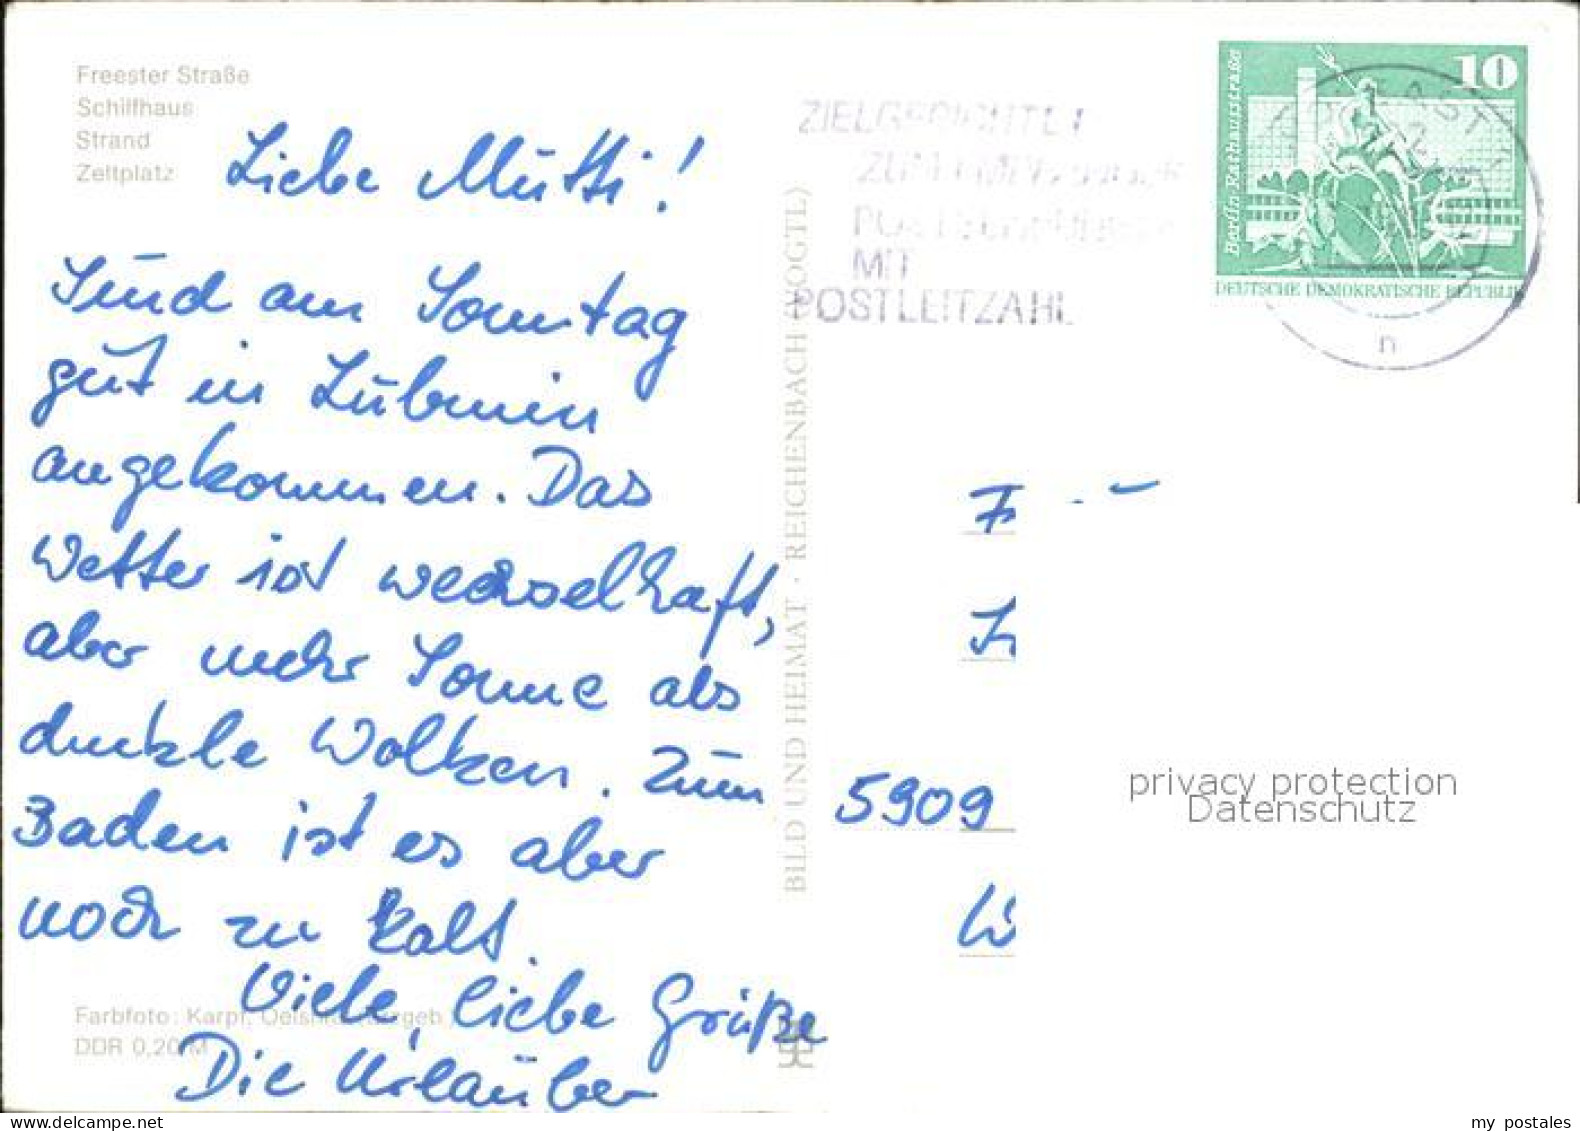 Freester Straße
Schilfhaus
Strand
Zeltplatz
Liebe Mutti!
Sind am Sonntag
gut in Lubmin
angekommen. Das
Wetter ist wechselhaft,
aber mehr Sonne als
dunkle Wolken. Zum
Baden ist es aber
noch zu kalt.
Viele, liebe Grüße
Die Urlauber
Farbfoto: Karpf,
DDR 0,20 M
BILD UND HEIMAT · REICHENBACH (VOGTL)
ZIELGERICHTET
ZUM
MIT
POSTLEITZAHL
10
Berlin Rathausstraße
DEUTSCHE DEMOKRATISCHE REPUBLIK
n
5909
privacy protection
Datenschutz
my postales